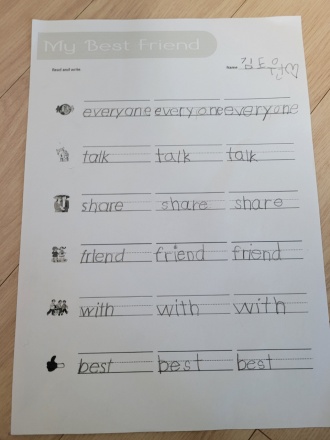 My Best Friend
Read and write
Name
everyone everyone everyone
talk talk talk
share share share
friend friend friend
with with with
best best best